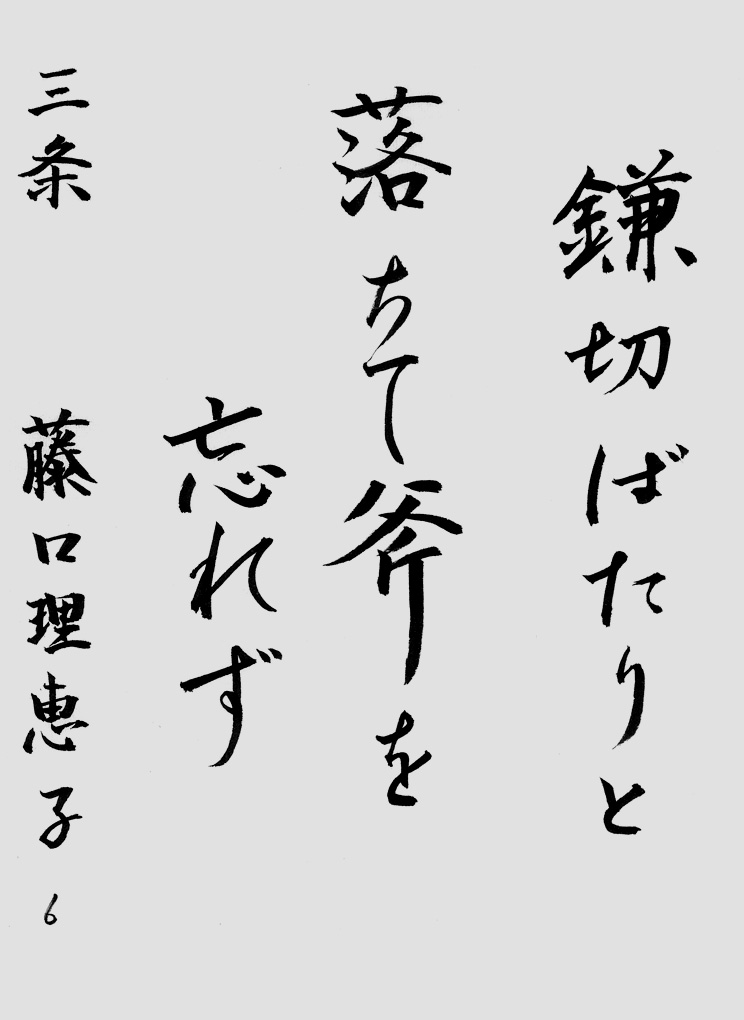 鎌切ばたりと
落ちて斧を
忘れず
三条 藤口理恵子 6